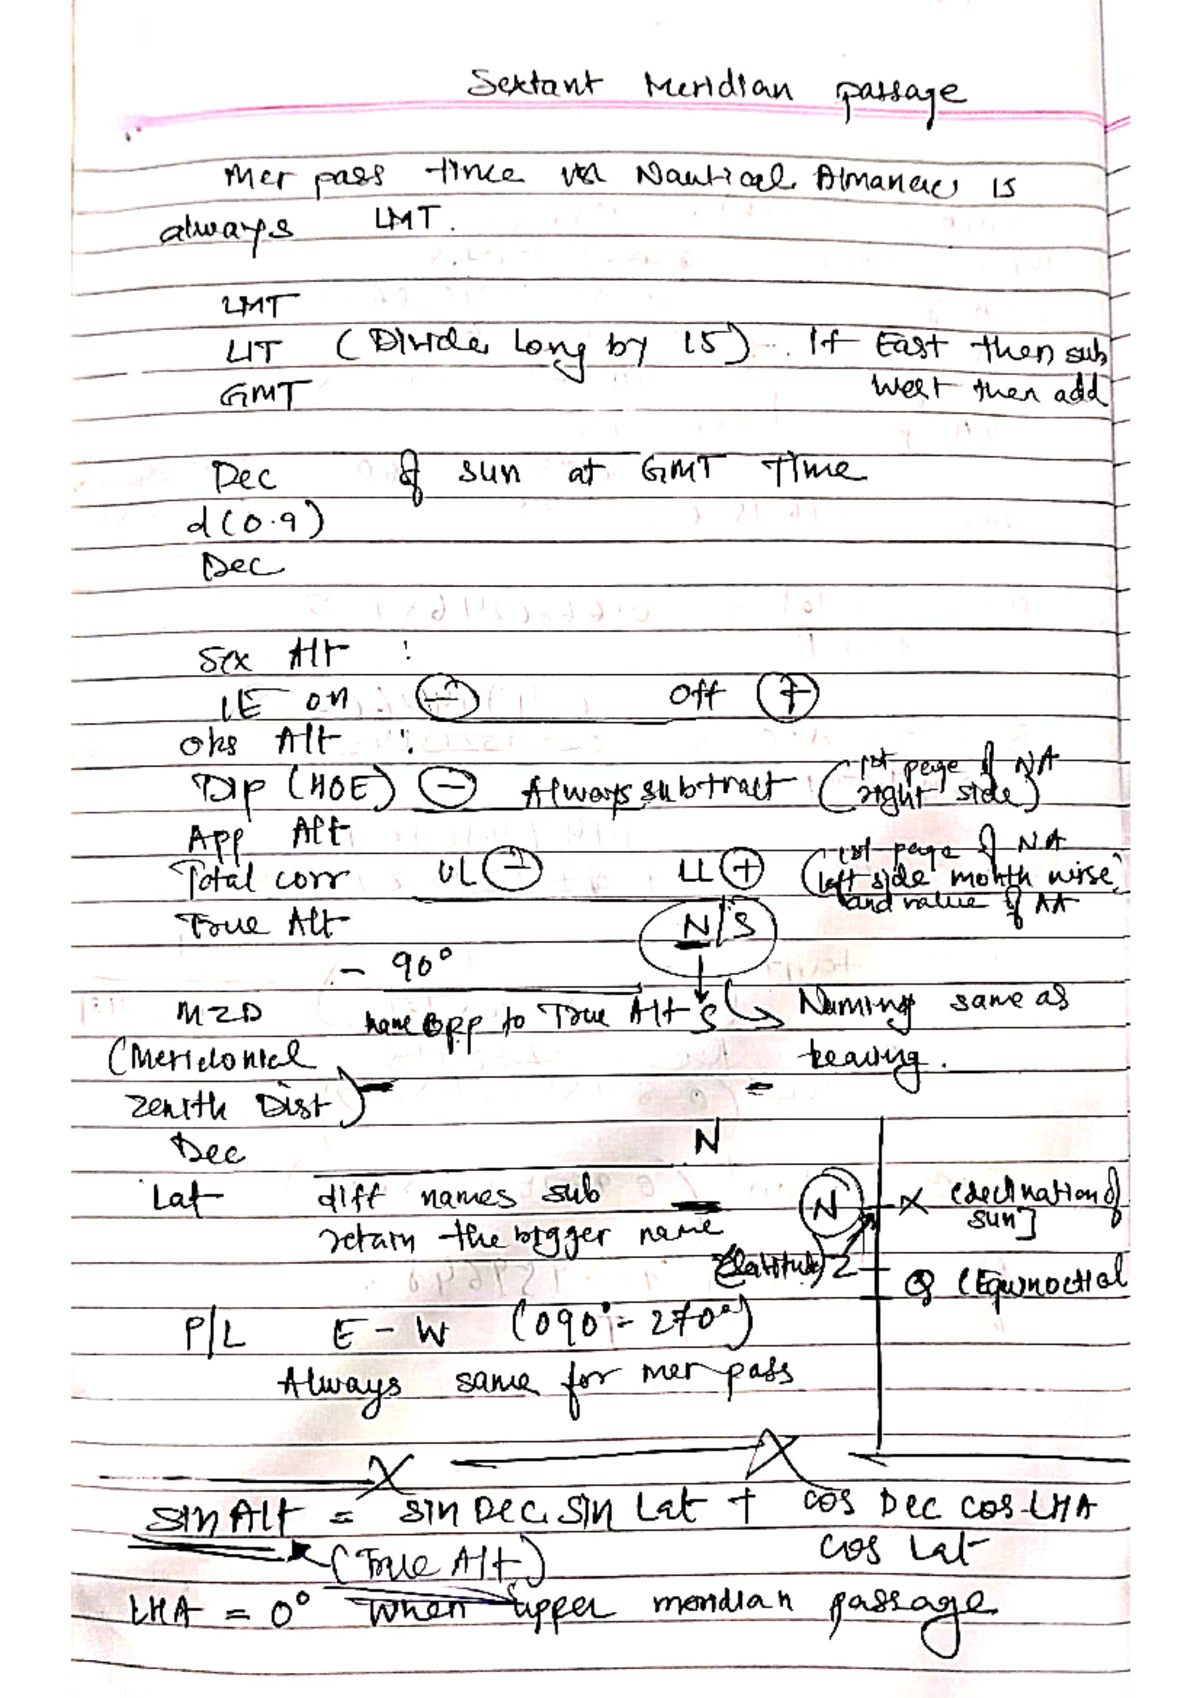 Sextant Meridian passage
Mer pass time in Nautical Almanac is
always LMT.
LMT
LIT (Divide Long by 15) If East then sub
GMT West then add
Dec of sun at GMT Time
d (0.9)
Dec
Sex Alt :
IE on (-) Off (+)
Obs Alt :
Dip (HOE) (-) Always subtract (1st page of NA
right side)
App Alt
Total corr UL (-) LL (+) (1st page of NA
left side month wise,
and value of AA
True Alt N/S
- 90°
MZD name opp to True Alt S Naming same as
(Meridonial bearing.
Zenith Dist)
Dec N
Lat diff names sub N X (declination of
sun]
retain the bigger name
(latitude) Z
Q (Equinoctial
P/L E - W (090° - 270°)
Always same for mer pass
sin Alt = sin Dec. Sin Lat + cos Dec cos LHA
cos Lat
(True Alt)
LHA = 0° when upper meridian passage